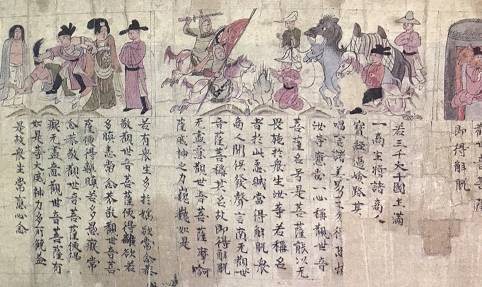 觀世音菩薩
即得解脫
若三千大千國土滿
一商主將諸商人
寶經過險路其
唱言諸善男子勿得
汝等應當一心稱觀世音
菩薩名号是菩薩能以无
畏施於眾生汝等若稱名
者於此怨賊當得解脫眾
商人聞俱發聲言南无觀世
音菩薩稱其名故即得解脫
无盡意觀世音菩薩摩訶
薩威神之力巍巍如是
若有眾生多於婬欲常念恭
敬觀世音菩薩便得離欲若
多瞋恚常念恭敬觀世音菩
薩便得離瞋若多愚癡常
念恭敬觀世音菩薩便得
无盡意觀世音菩薩有
如是等大威神力多所饒益
是故眾生常應心念